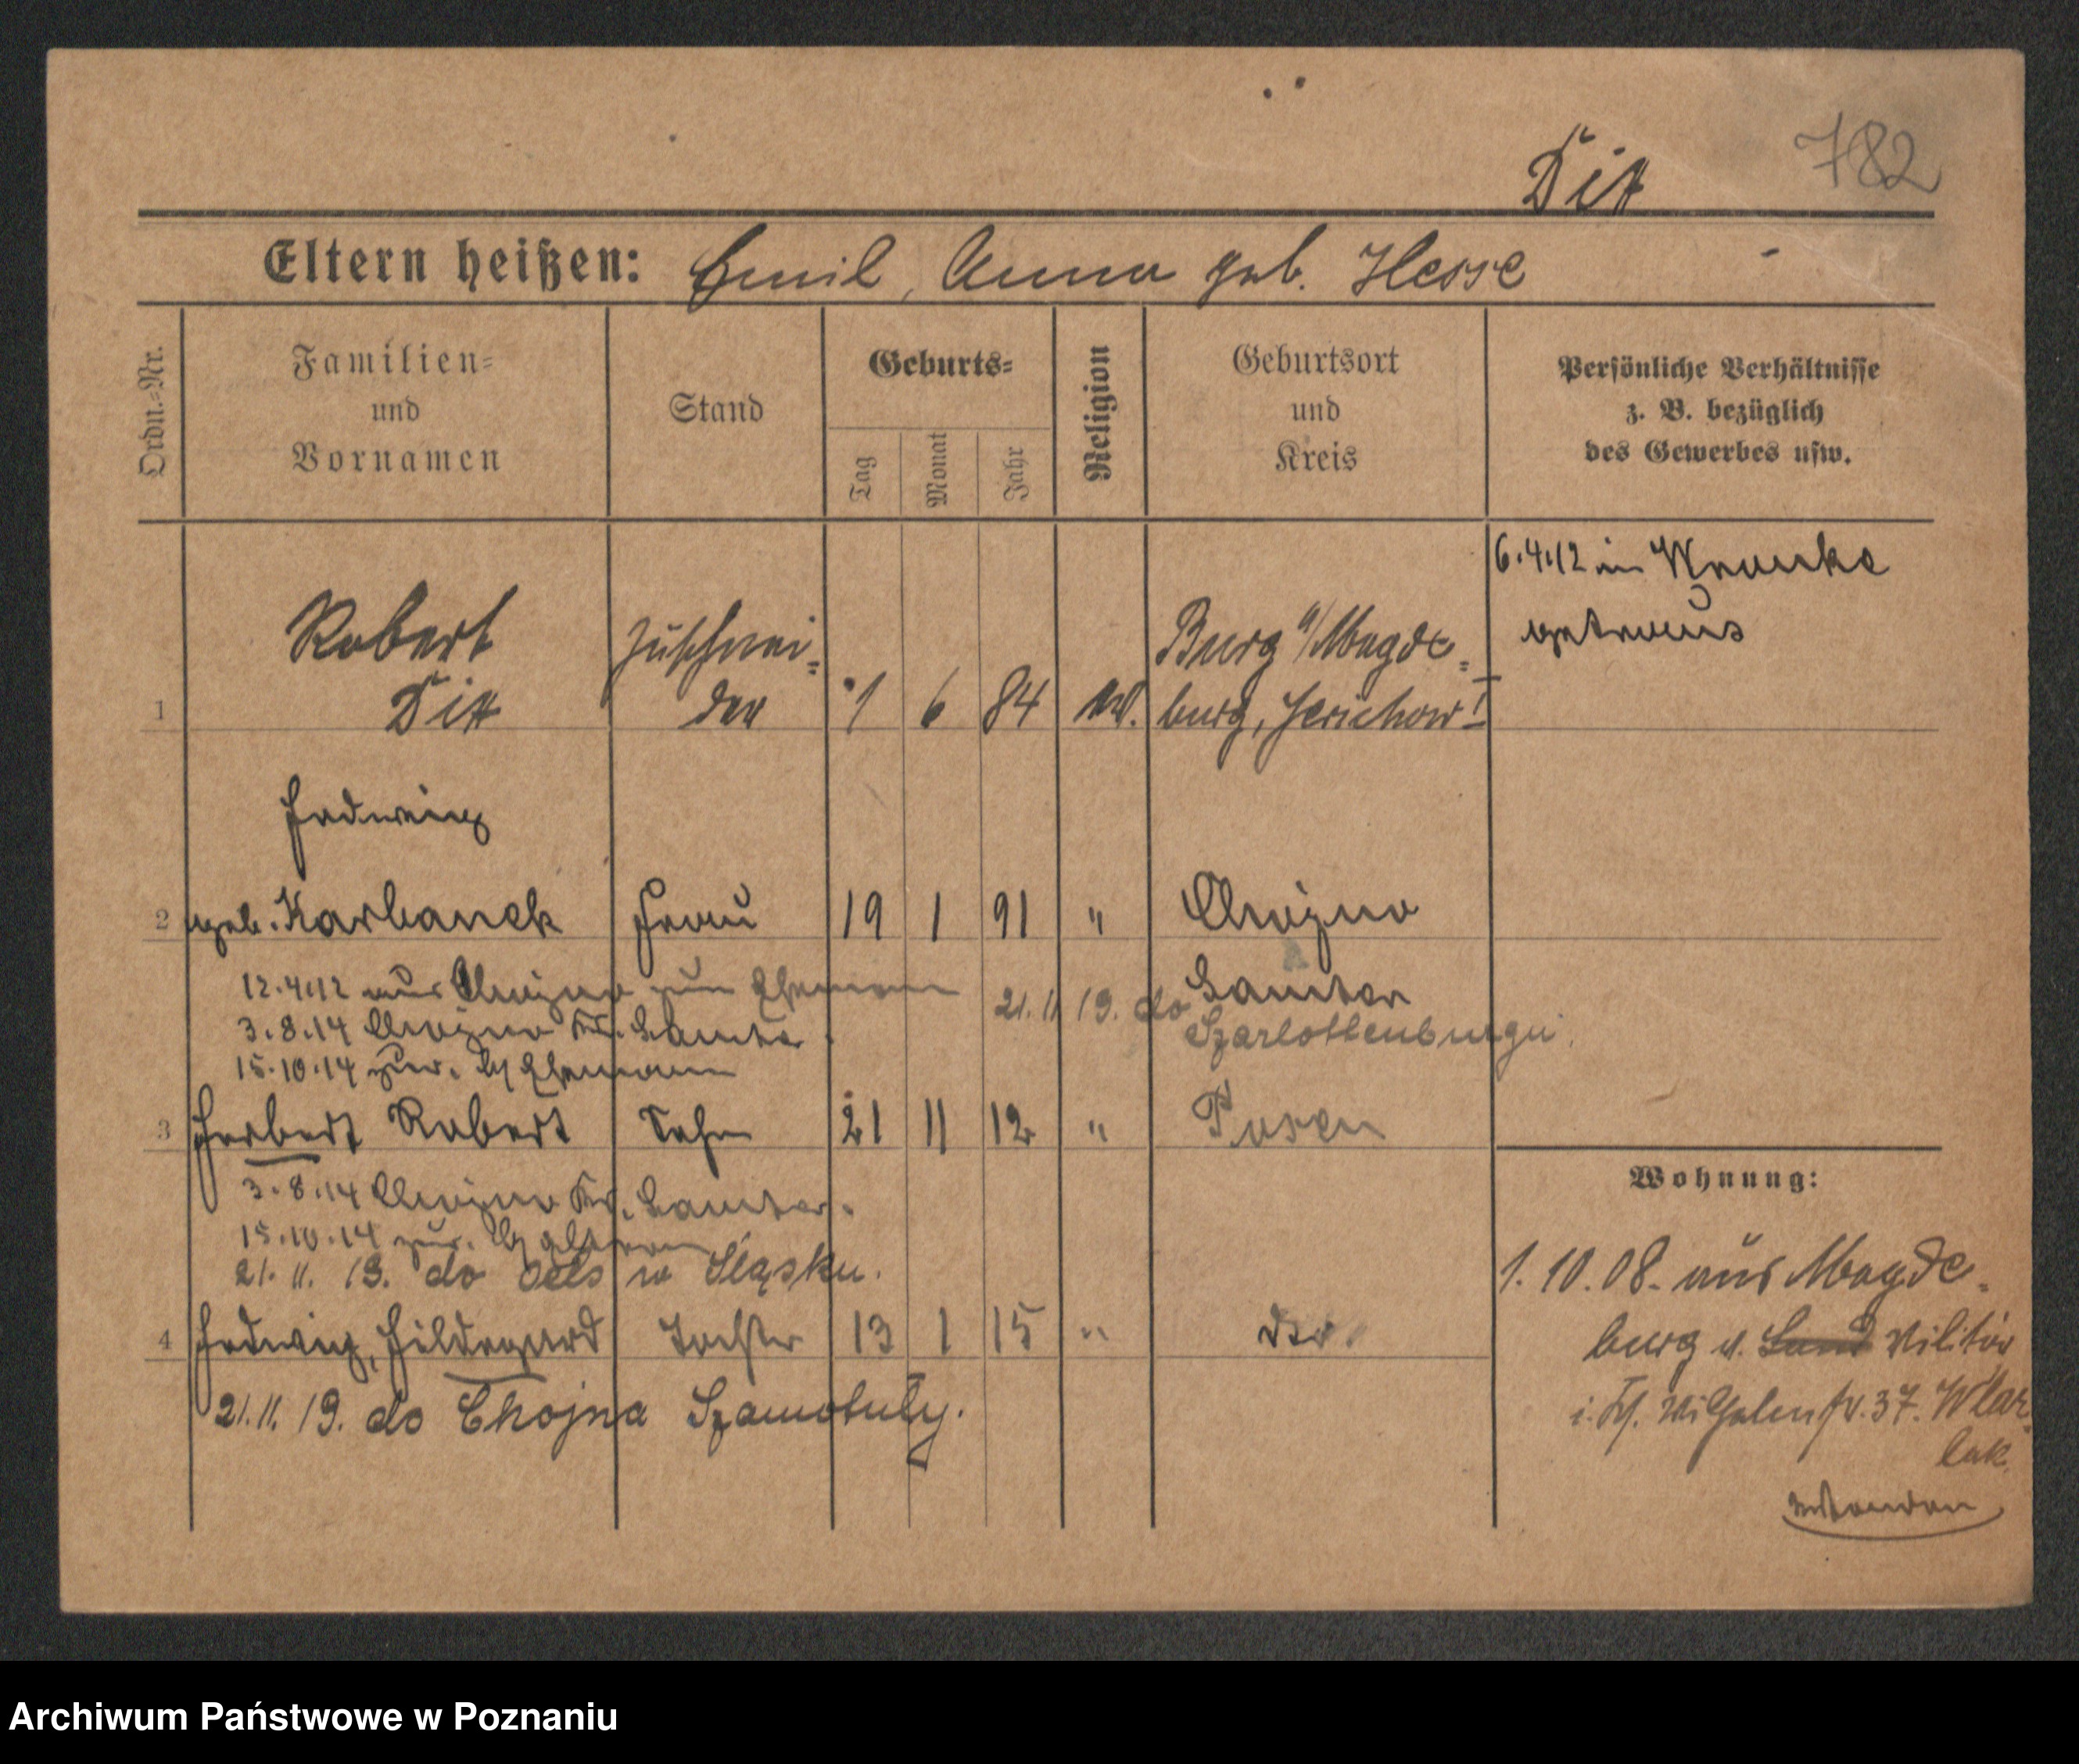 782
Dix
Eltern heißen: Emil, Anna geb. Hesse
Ordn.-Nr.
Familien-
und
Vornamen
Stand
Geburts-
Tag
Monat
Jahr
Religion
Geburtsort
und
Kreis
Persönliche Verhältnisse
z. B. bezüglich
des Gewerbes usw.
6.4.12 in Wronke
getraut
1
Robert
Dix
Zuschnei-
der
1 6 84
Burg a/Magde-
burg, Jerichow I
Hedwig
2 geb. Karbanek Frau 19 1 91 " Chojno
Samter
12.4.12 aus Chojno zum Ehemann
21.11.19. do
Szarlottenburgu.
3.8.14 Chojno Kr. Samter.
15.10.14 zur. b/ Ehemann
3 Herbert Robert Sohn 21 11 12 " Posen
3.8.14 Chojno Kr. Samter.
15.10.14 zur. b/ Eltern
21. 11. 19. do Oels w Śląsku.
4 Hedwig, Hildegard Tochter 13 1 15 " dto.
21.11.19. do Chojna Szamotuły.
Wohnung:
1.10.08. aus Magde-
burg v. Militär
37.